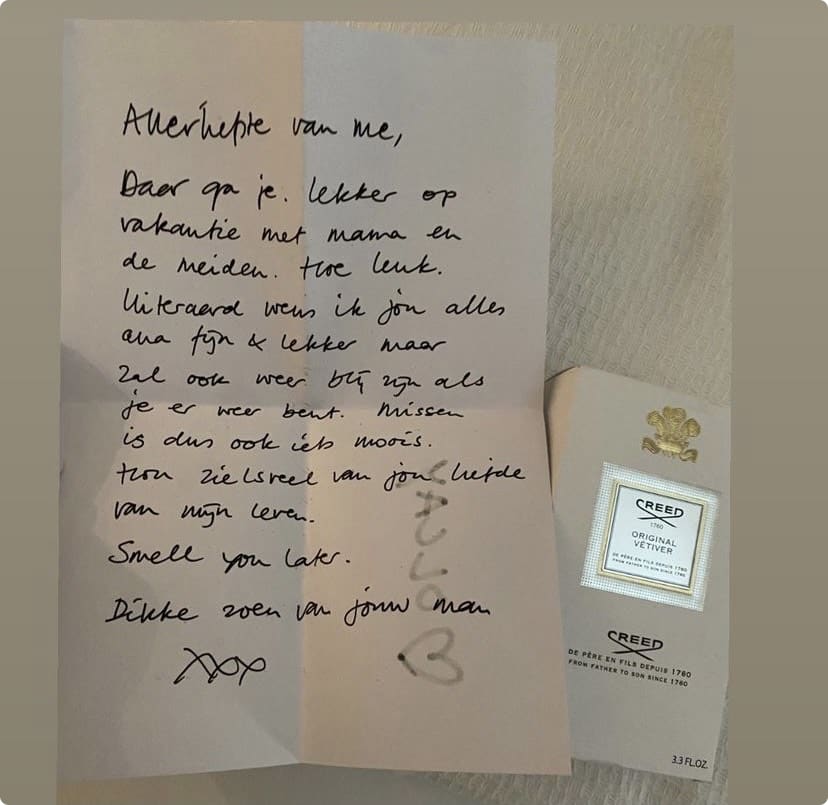 Allerliefste van me,
Daar ga je. Lekker op
vakantie met mama en
de meiden. Hoe leuk.
Uiteraard wens ik jou alles
ana fijn & lekker maar
zal ook weer blij zijn als
je er weer bent. Missen
is dus ook iets moois.
Hou zielsveel van jou liefde
van mijn leven.
Smell you later.
Dikke zoen van jouw man
XXX
CREED
1760
ORIGINAL
VETIVER
DE PÈRE EN FILS DEPUIS 1760
FROM FATHER TO SON SINCE 1760
CREED
DE PÈRE EN FILS DEPUIS 1760
FROM FATHER TO SON SINCE 1760
3.3 FL.OZ.